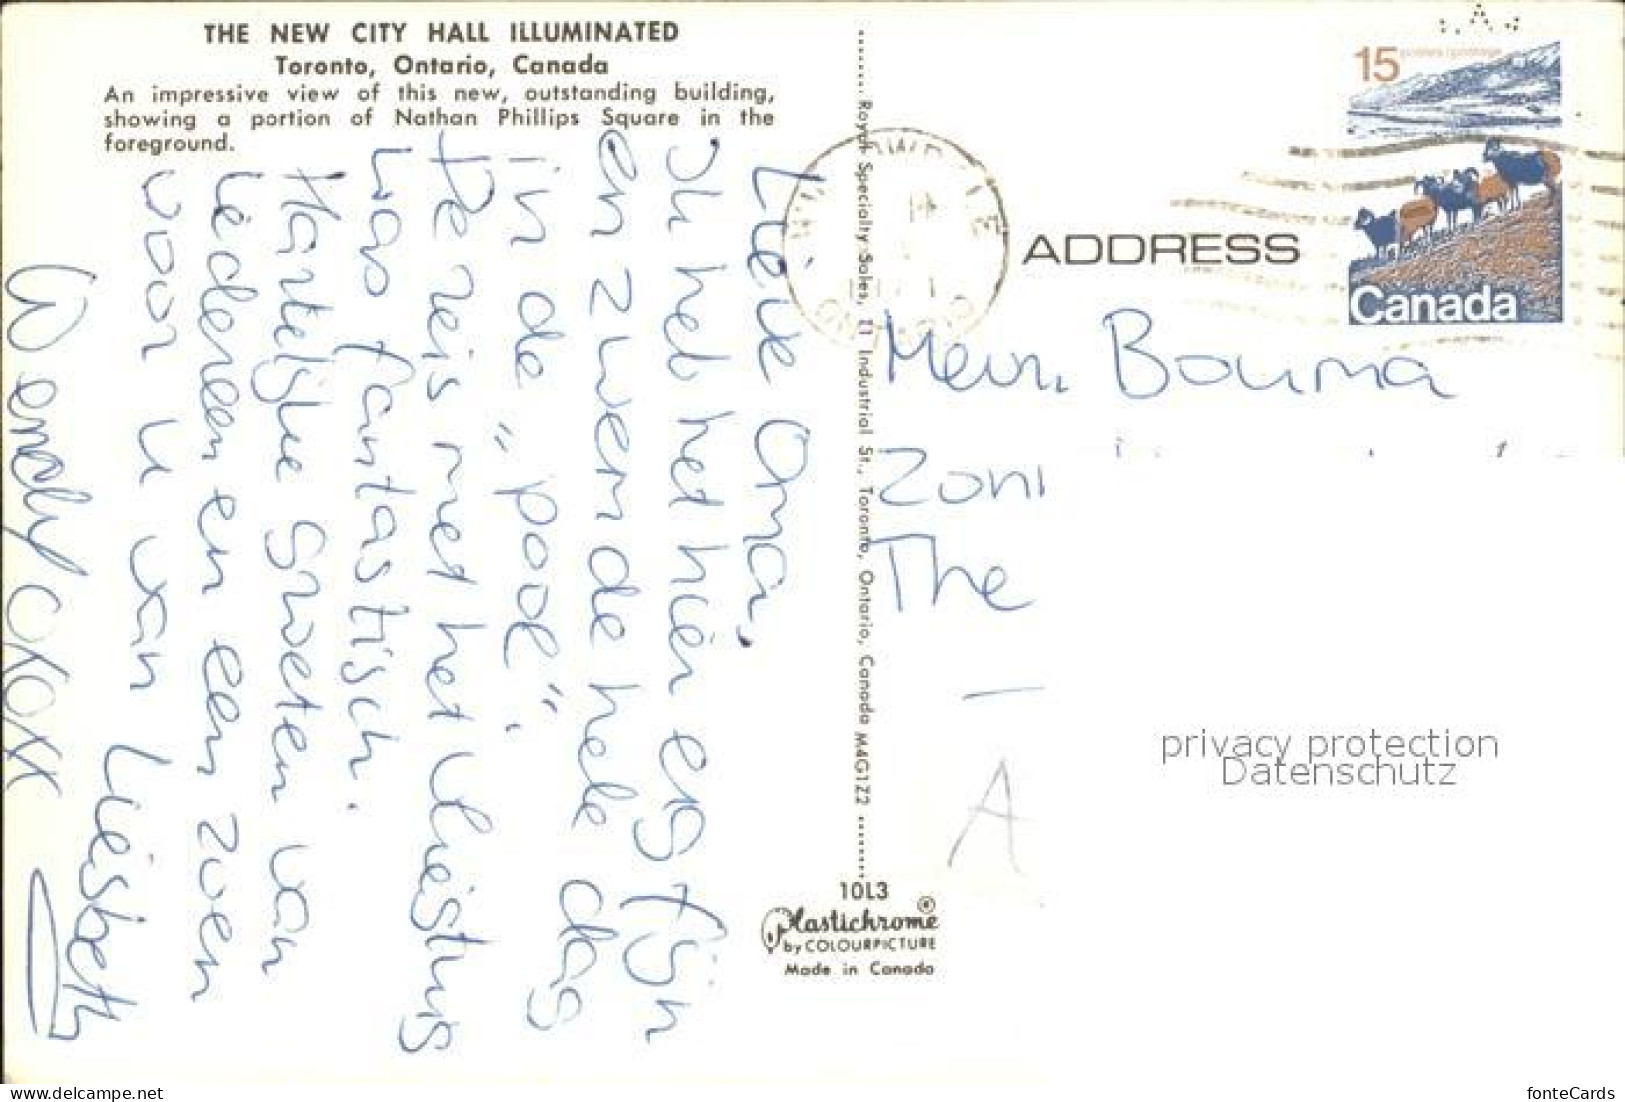 THE NEW CITY HALL ILLUMINATED
Toronto, Ontario, Canada
An impressive view of this new, outstanding building,
showing a portion of Nathan Phillips Square in the
foreground.
Lieve Oma,
Ik heb het hier erg fijn
en zwem de hele dag
in de "pool".
De reis met het vliegtuig
was fantastisch.
Hartelijke groeten van
iedereen en een zoen
voor u van
Liesbeth
Wendy
Royal Specialty Sales, 11 Industrial St., Toronto, Ontario, Canada M4G1Z2
10L3
Plastichrome®
by COLOURPICTURE
Made in Canada
15
postes/postage
Canada
ADDRESS
Bouma
The
A
privacy protection
Datenschutz
www.delcampe.net
fonteCards